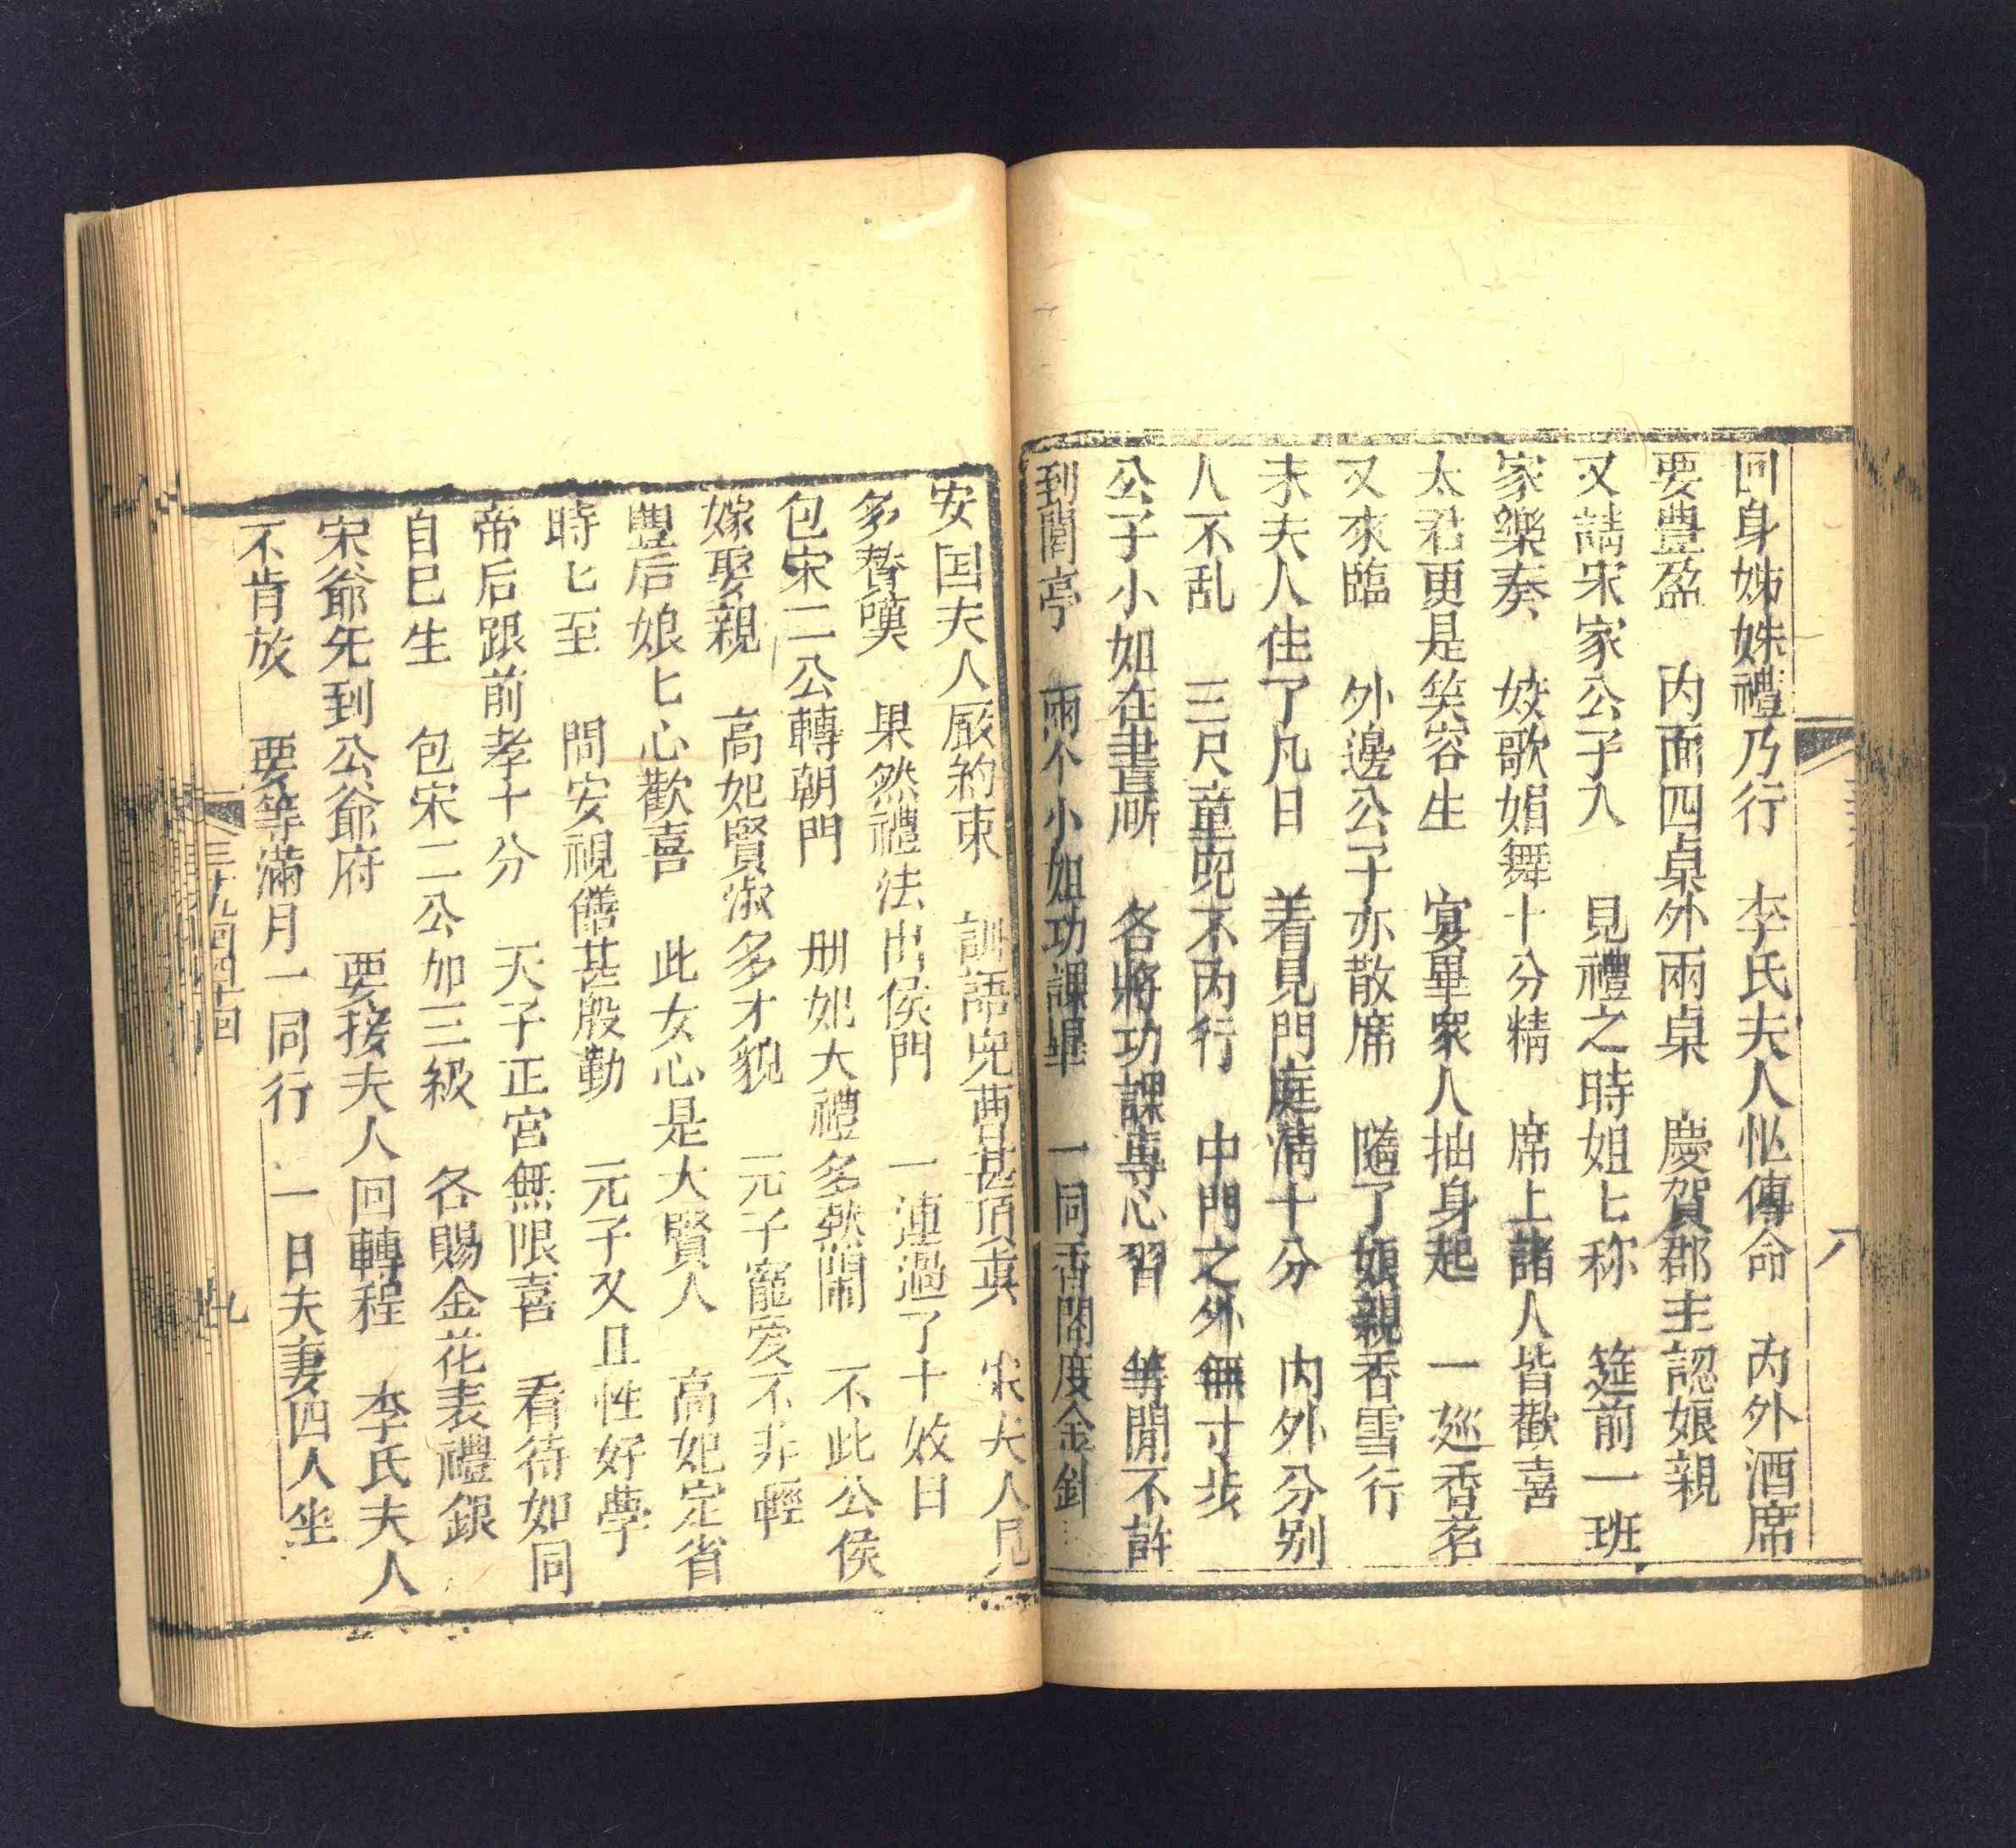 回身姊妹禮乃行　李氏夫人忙傳命　內外酒席
要豊盈　內面四桌外兩桌　慶賀郡主認娘親
又請宋家公子入　見禮之時姐匕称　筵前一班
家樂奏　姣歌娼舞十分精　席上諸人皆歡喜
太君更是笑容生　宴畢眾人抽身起　一廵香茗
又來臨　外邊公子亦散席　隨了娘親香雪行
末夫人住了凡日　着見門庭淸十分　內外分別
人不乱　三尺童兒不內行　中門之外無寸步
公子小如在書所　各將功課專心習　等閒不許
到閣亭　兩个小姐功課畢　一同香閣度金針
安国夫人厰約束　訓語兒曹甚頂真　宋夫人見
多替嘆　果然禮法出侯門　一連過了十效日
包宋二公轉朝門　册妃大禮多熱鬧　不此公侯
嫁娶親　高妃賢淑多才貌　元子寵爱不非輕
豐后娘匕心歡喜　此女心是大賢人　高妃定省
時匕至　問安視儋甚殷勤　元子又且性好學
帝后跟前孝十分　天子正宮無限喜　看待如同
自已生　包宋二公加三級　各賜金花表禮銀
宋爺先到公爺府　要接夫人回轉程　李氏夫人
不肯放　要等滿月一同行　一日夫妻四人坐
三十九回四十回
九
八